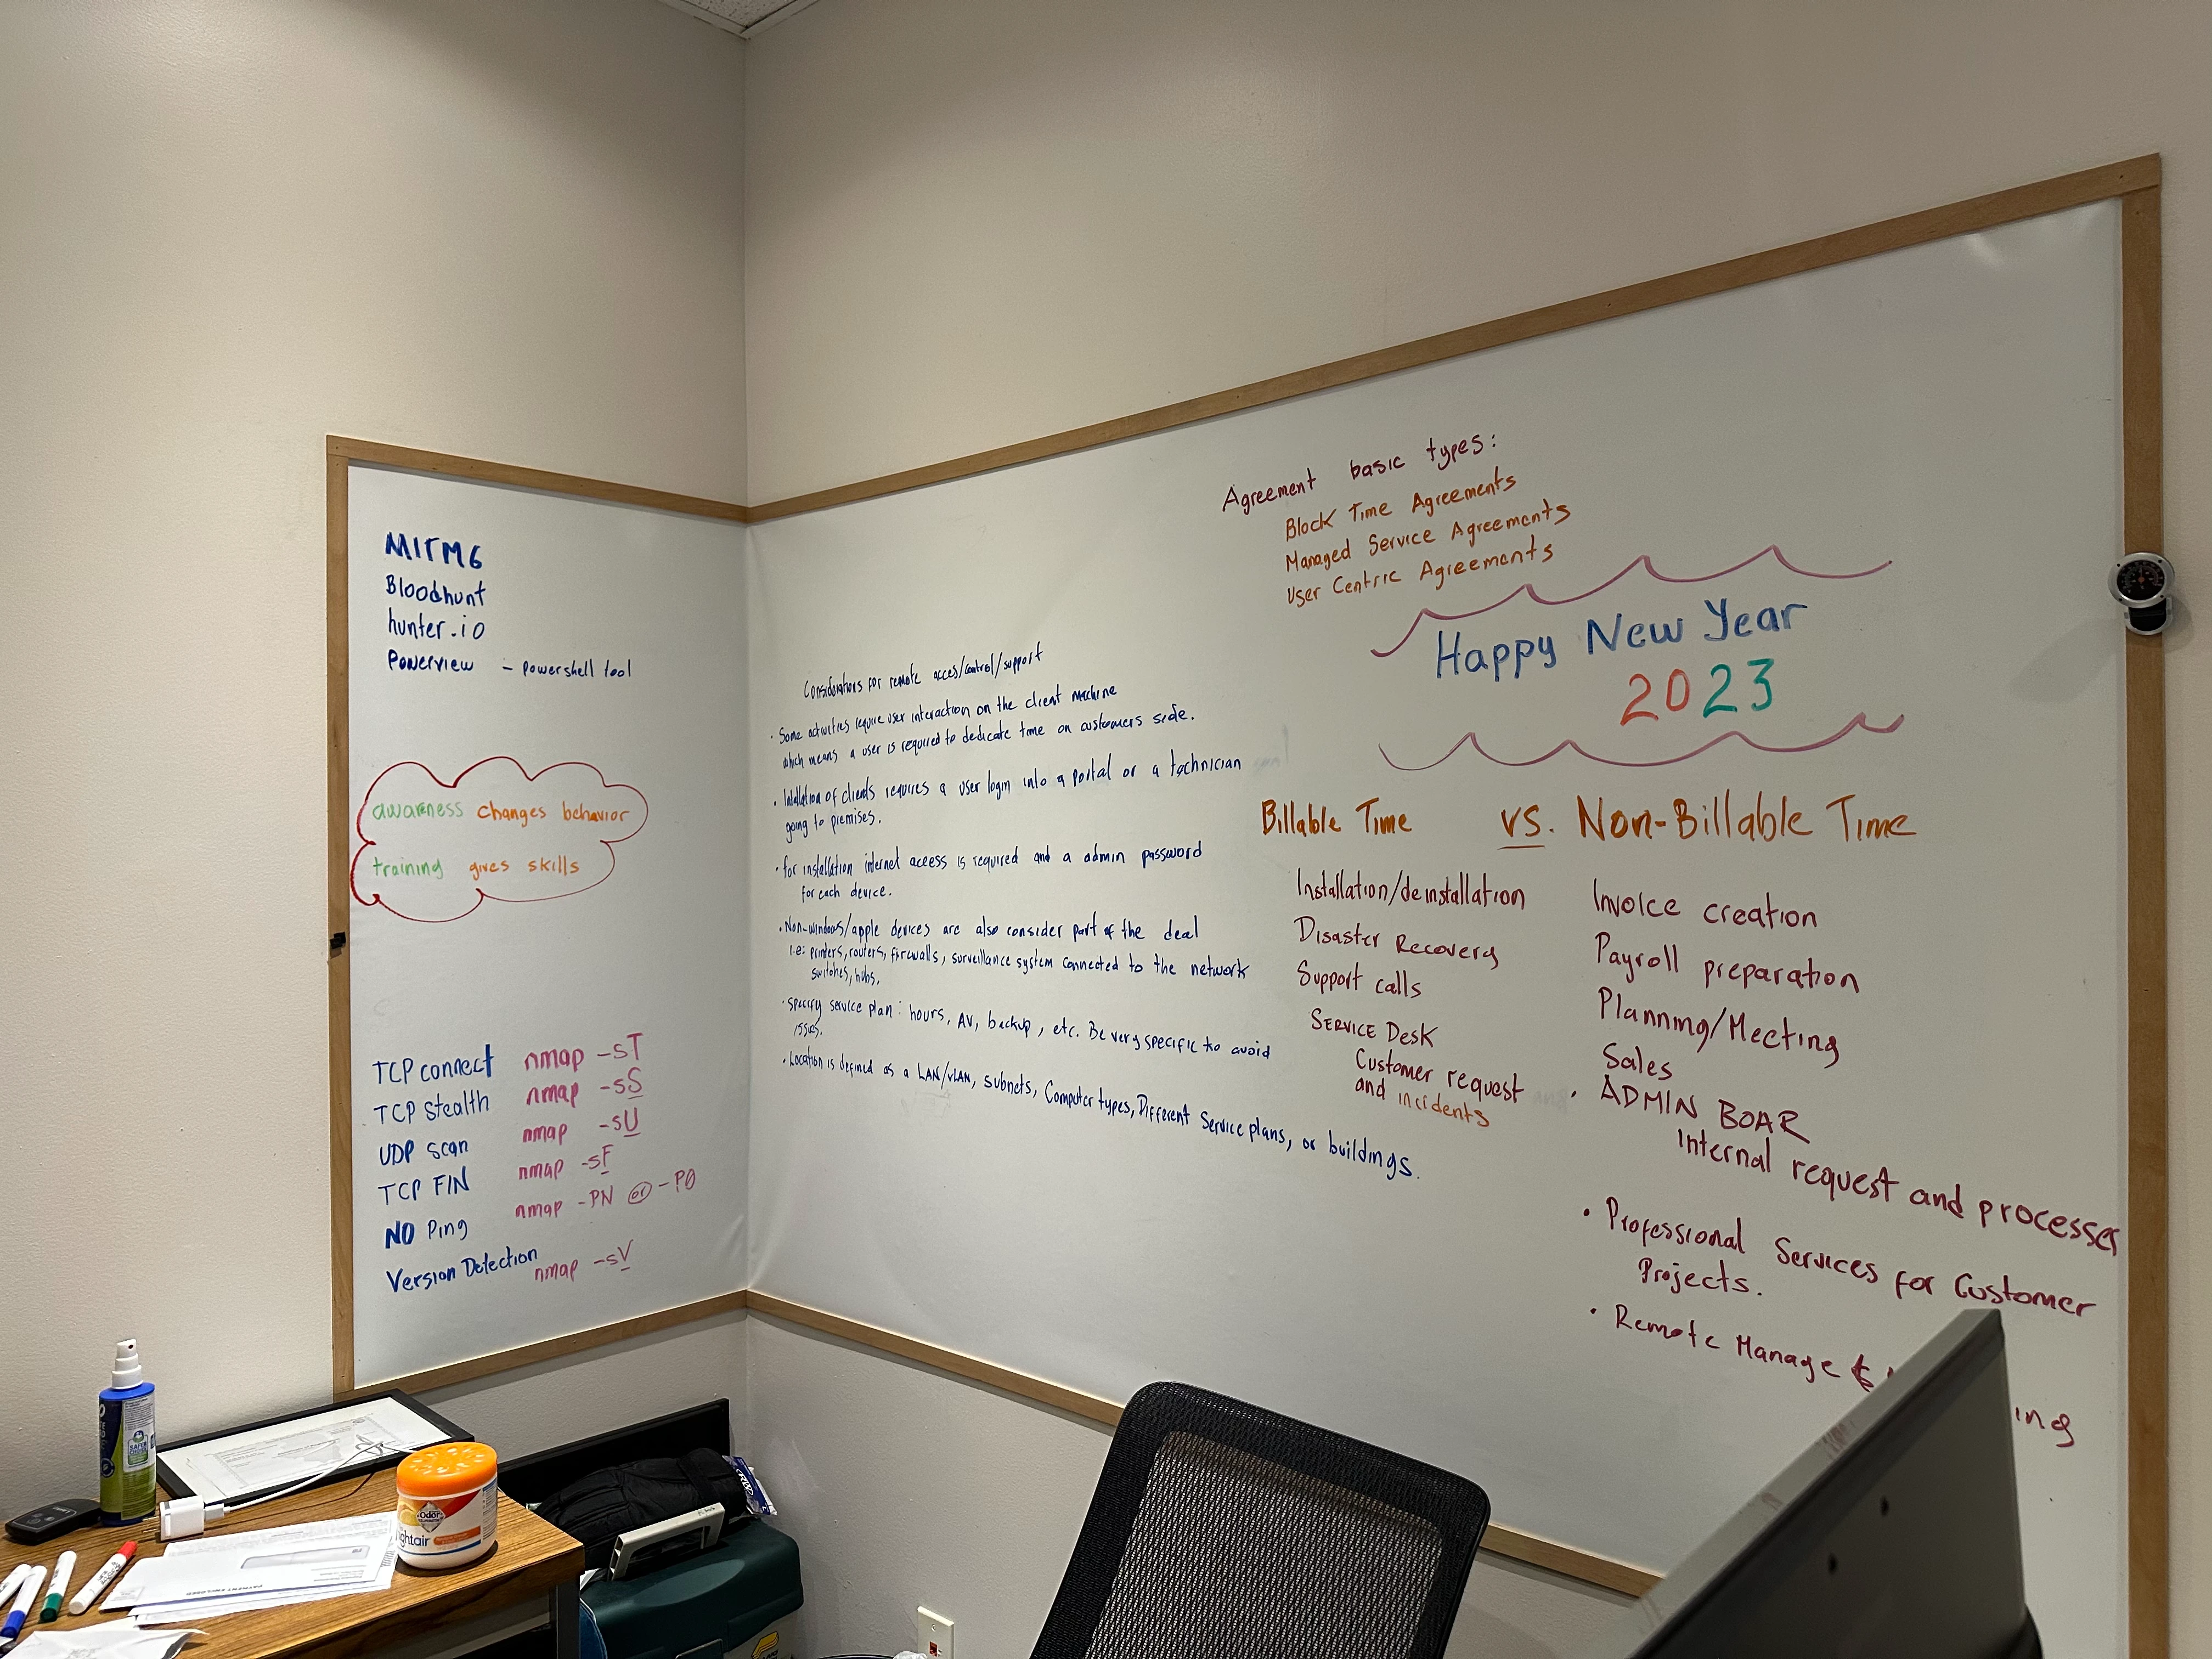 MITM6
Bloodhunt
hunter.io
Powerview - powershell tool
awareness changes behavior
training gives skills
TCP connect nmap -sT
TCP stealth nmap -sS
UDP scan nmap -sU
TCP FIN nmap -sF
NO Ping nmap -PN or -P0
Version Detection nmap -sV
Considerations for remote acces/control/support
· Some activities require user interaction on the client machine
which means a user is required to dedicate time on customers side.
· Intallation of clients requires a user login into a portal or a technician
going to premises.
· for installation internet access is required and a admin password
for each device.
· Non-windows/apple devices are also consider part of the deal
i.e: printers, routers, firewalls, surveillance system connected to the network
switches, hubs.
· Specify service plan: hours, AV, backup, etc. Be very specific to avoid
· Location is defined as a LAN/vLAN, subnets, Computer types, Different Service plans, or buildings.
Agreement basic types:
Block Time Agreements
Managed Service Agreements
User Centric Agreements
Happy New Year
2023
Billable Time vs. Non-Billable Time
Installation/deinstallation
Disaster Recovery
Support calls
SERVICE DESK
Customer request
and incidents
Invoice creation
Payroll preparation
Planning/Meeting
Sales
· ADMIN BOAR
Internal request and processes
· Professional Services for Customer
Projects.
· Remote Manage &
ing
Odor